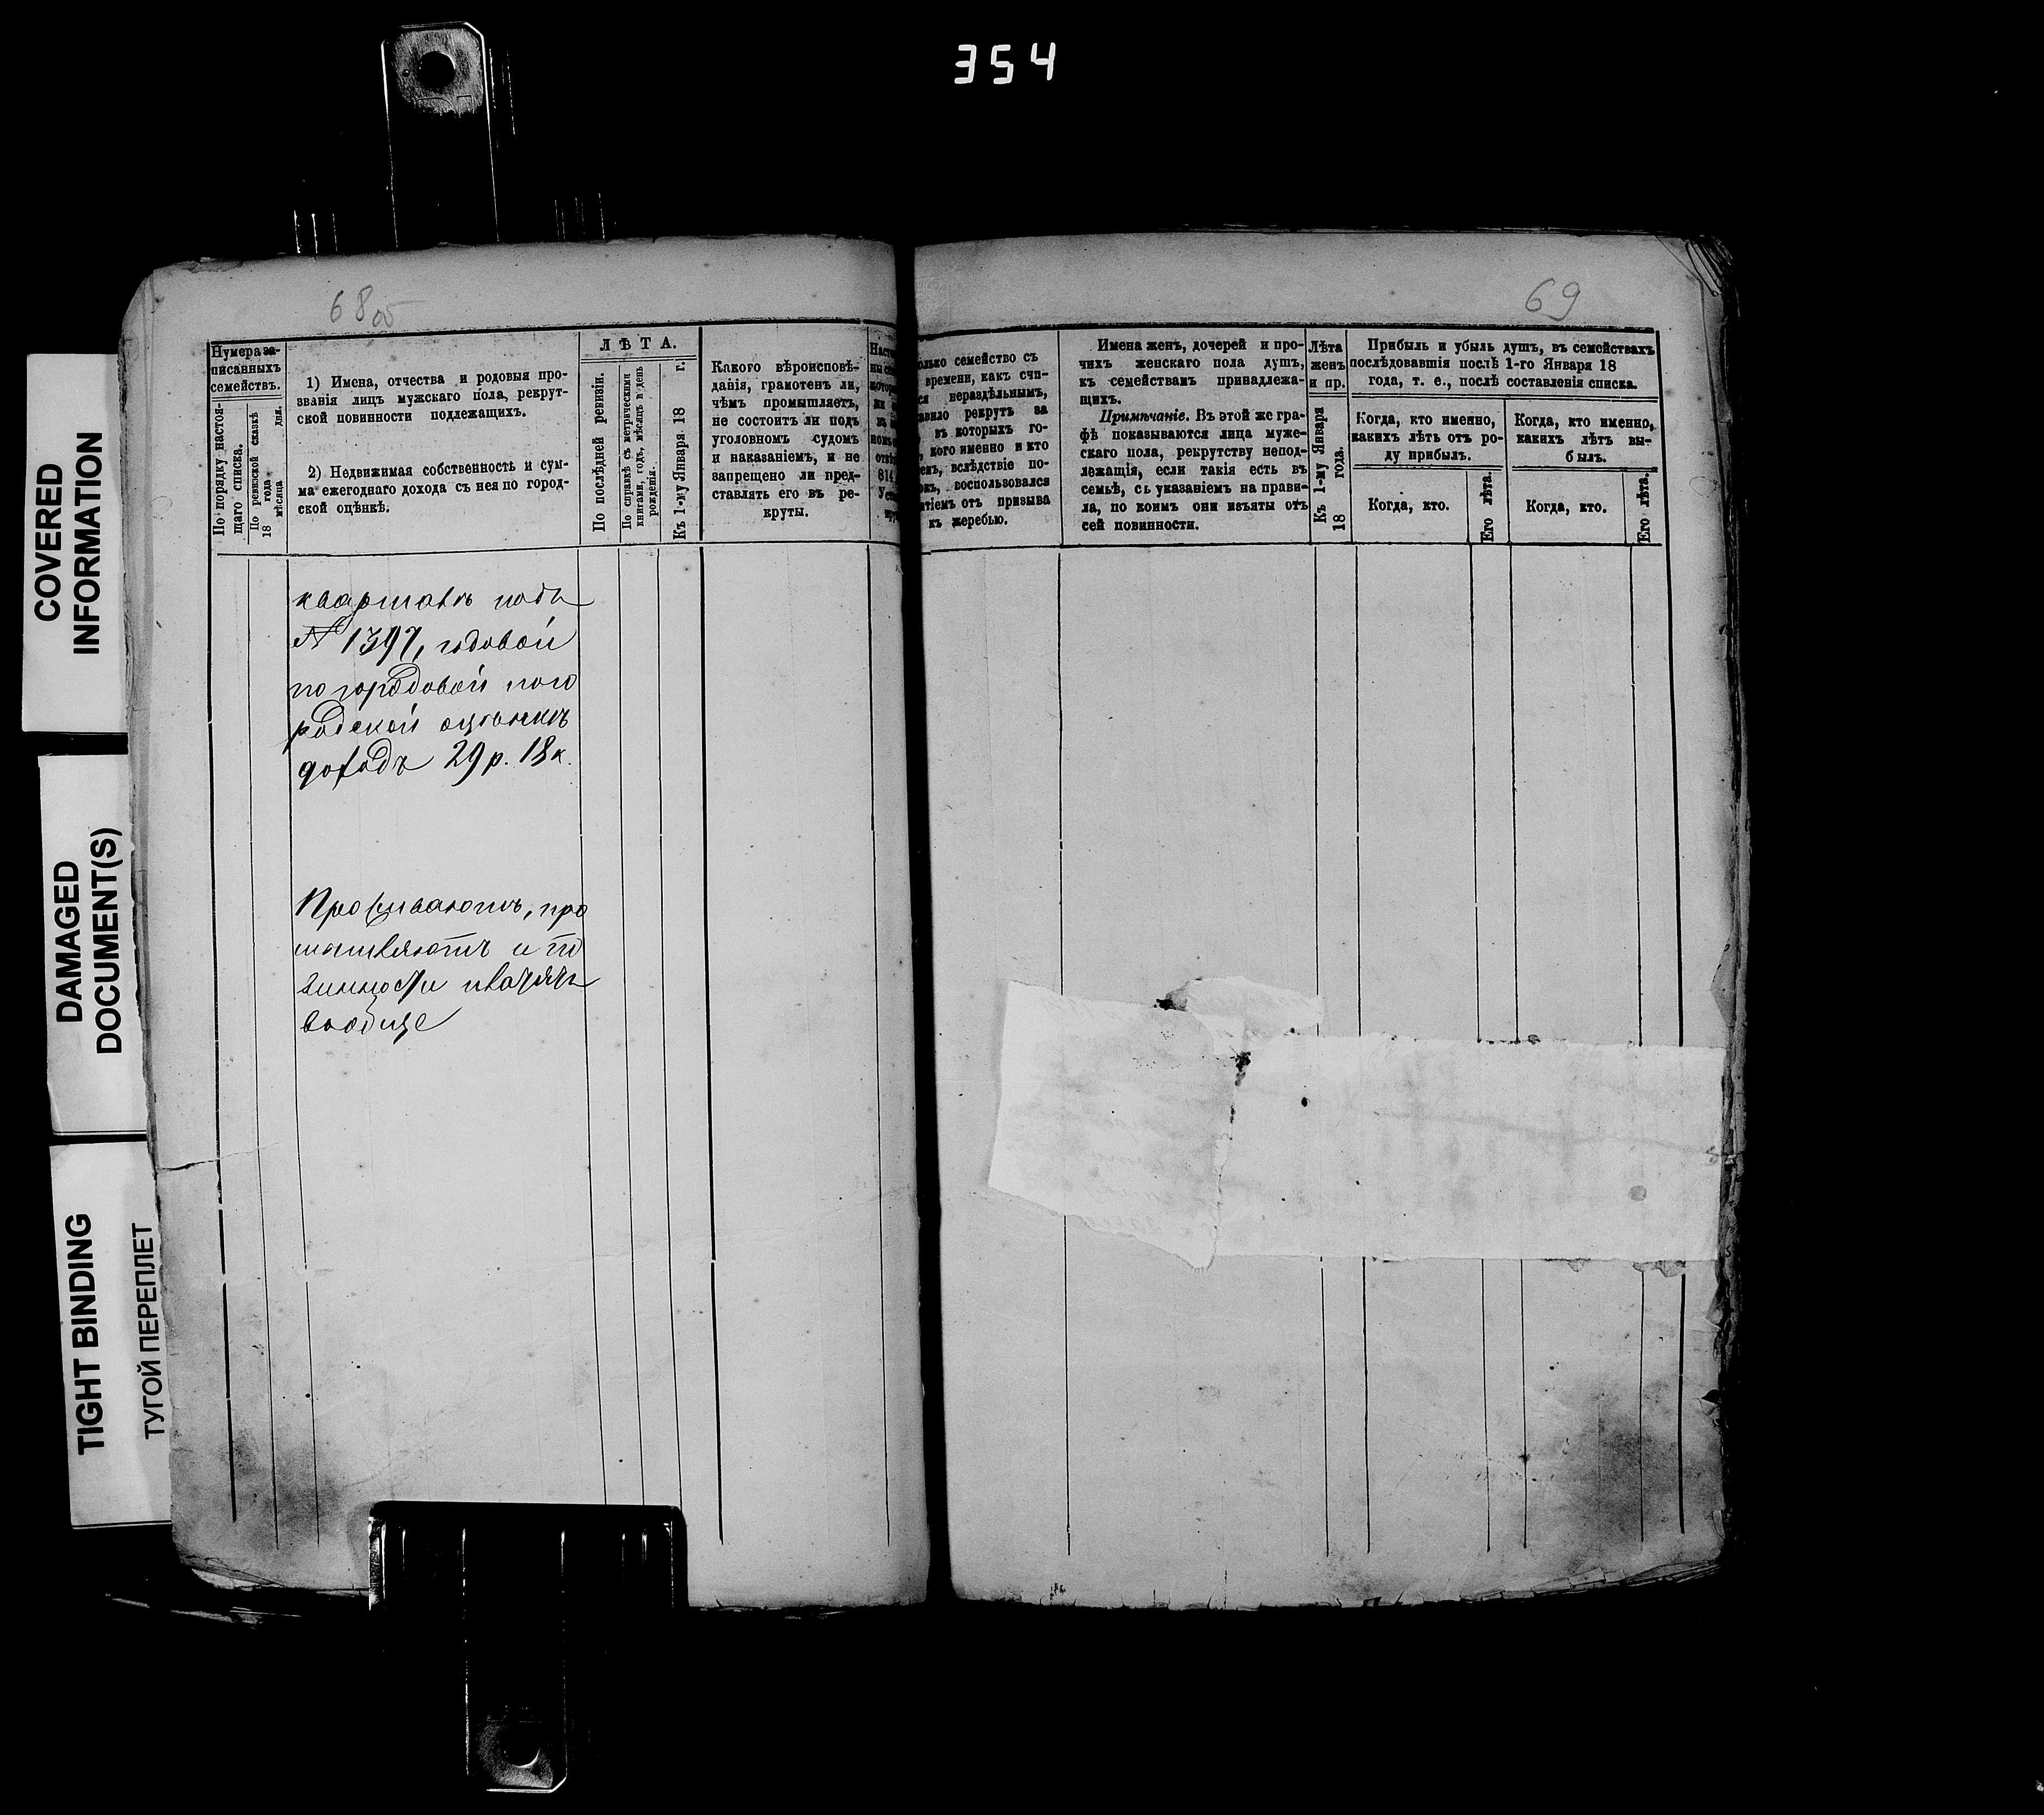 354
COVERED
INFORMATION
DAMAGED
DOCUMENT(S)
TIGHT BINDING
ТУГОЙ ПЕРЕПЛЕТ
68об
Нумера за-
писанныхъ
семействъ.
По порядку настоя-
щаго списка.
По ревизской сказкѣ
18 года дня.
мѣсяца
1) Имена, отчества и родовыя про-
званія лицъ мужскаго пола, рекрут-
ской повинности подлежащихъ.
2) Недвижимая собственность и сум-
ма ежегоднаго дохода съ нея по город-
ской оцѣнкѣ.
ЛѢТА.
По послѣдней ревизіи.
По справкѣ съ метрическими
книгами, годъ, мѣсяцъ и день
рожденія.
Къ 1-му Января 18 г.
Какого вѣроисповѣ-
данія, грамотенъ ли,
чѣмъ промышляетъ,
не состоитъ ли подъ
уголовномъ судомъ
и наказаніемъ, и не
запрещено ли пред-
ставлять его въ ре-
круты.
814
кварталѣ подъ
№ 1397, годовой
по городовой пого
родской оцѣнкѣ
доходъ 29 р. 18 к.
Проживаютъ, про
мышляютъ и по
винности
вообще
69
семейство съ
времени, какъ счи-
нераздѣльнымъ,
рекрутъ за
въ которыхъ го-
кого именно и кто
вслѣдствіе по-
воспользовался
отъ призыва
къ жеребью.
Имена женъ, дочерей и про-
чихъ женскаго пола душъ,
къ семействамъ принадлежа-
щихъ.
Примѣчаніе. Въ этой же гра-
фѣ показываются лица муже-
скаго пола, рекрутству непод-
лежащія, если такія есть въ
семьѣ, съ указаніемъ на прави-
ла, по коимъ они изъяты отъ
сей повинности.
Лѣта
женъ
и пр.
Къ 1-му Января
18 года.
Прибыль и убыль душъ, въ семействахъ
послѣдовавшія послѣ 1-го Января 18
года, т. е., послѣ составленія списка.
Когда, кто именно,
какихъ лѣтъ отъ ро-
ду прибылъ.
Когда, кто.
Его лѣта.
Когда, кто именно,
какихъ лѣтъ вы-
былъ.
Когда, кто.
Его лѣта.